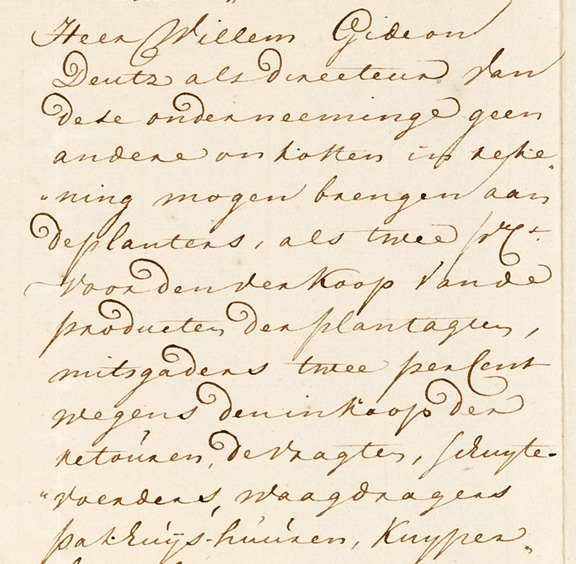 Heer Willem Gideon
Deutz als directeur van
dese onderneeminge geen
andere onkosten in reke„
„ning mogen brengen aan
de planters, als twee prCt.
voor den verkoop van de
producten der plantagien,
mitsgaders twee perCent
wegens den inkoop der
retouren, de vragten, schuyte„
„voerders, waagdragers
pakhuijs-huúren, Kuyper„